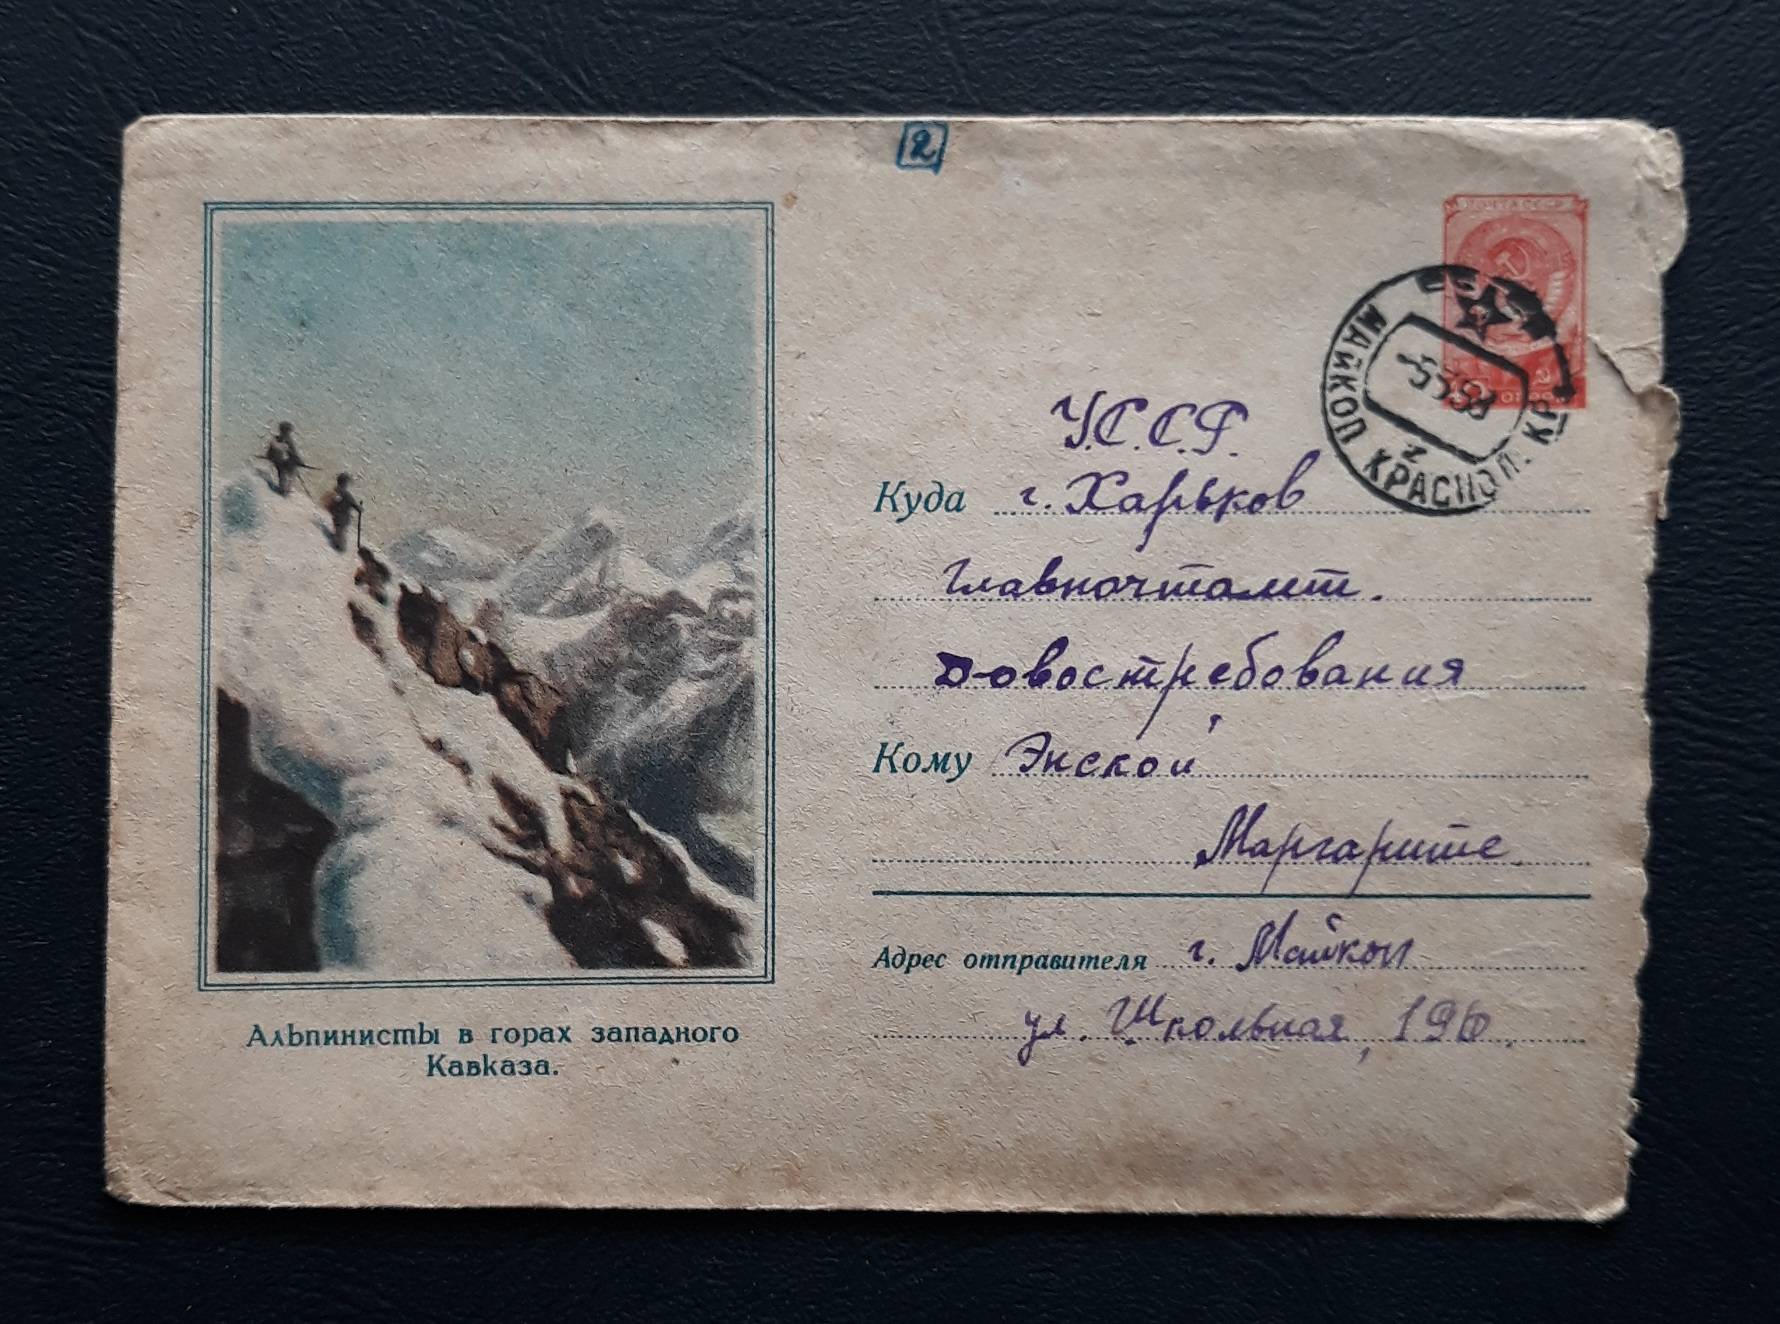 2
ПОЧТА СССР
МАЙКОП КРАСНОД. КР.
У.С.С.Р.
Куда г. Харьков
Главпочтамт.
довостребования
Кому Энской
Маргарите.
Адрес отправителя г. Майкоп
ул. Школьная, 196.
Альпинисты в горах западного
Кавказа.